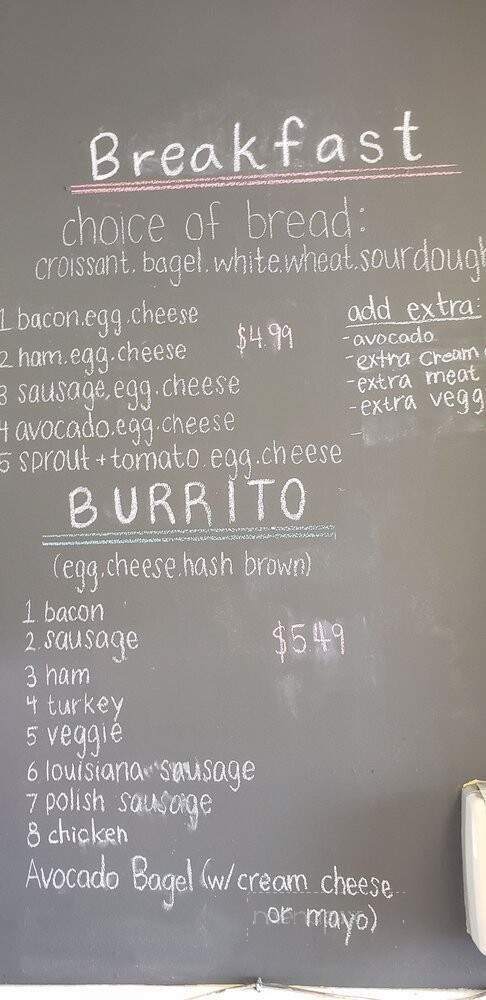 Breakfast
choice of bread:
croissant. bagel. white. wheat. sourdough
1 bacon.egg.cheese
2 ham.egg.cheese
3 sausage.egg.cheese
4 avocado.egg.cheese
5 sprout+tomato.egg.cheese
$4.99
add extra:
-avocado
-extra cream
-extra meat
-extra vegg
-
BURRITO
(egg.cheese.hash brown)
1 bacon
2 sausage
3 ham
4 turkey
5 veggie
6 louisiana sausage
7 polish sausage
8 chicken
$5.49
Avocado Bagel (w/cream cheese
or mayo)